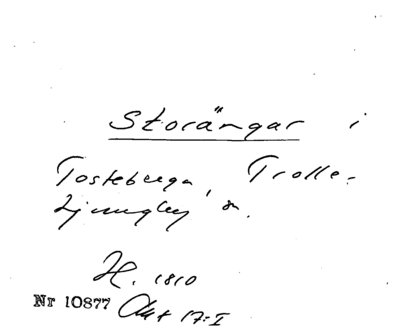 Storängar i
Tosteberga, Trolle-
Ljungby sn.
H. 1810
Nr 10877 Akt 17:I